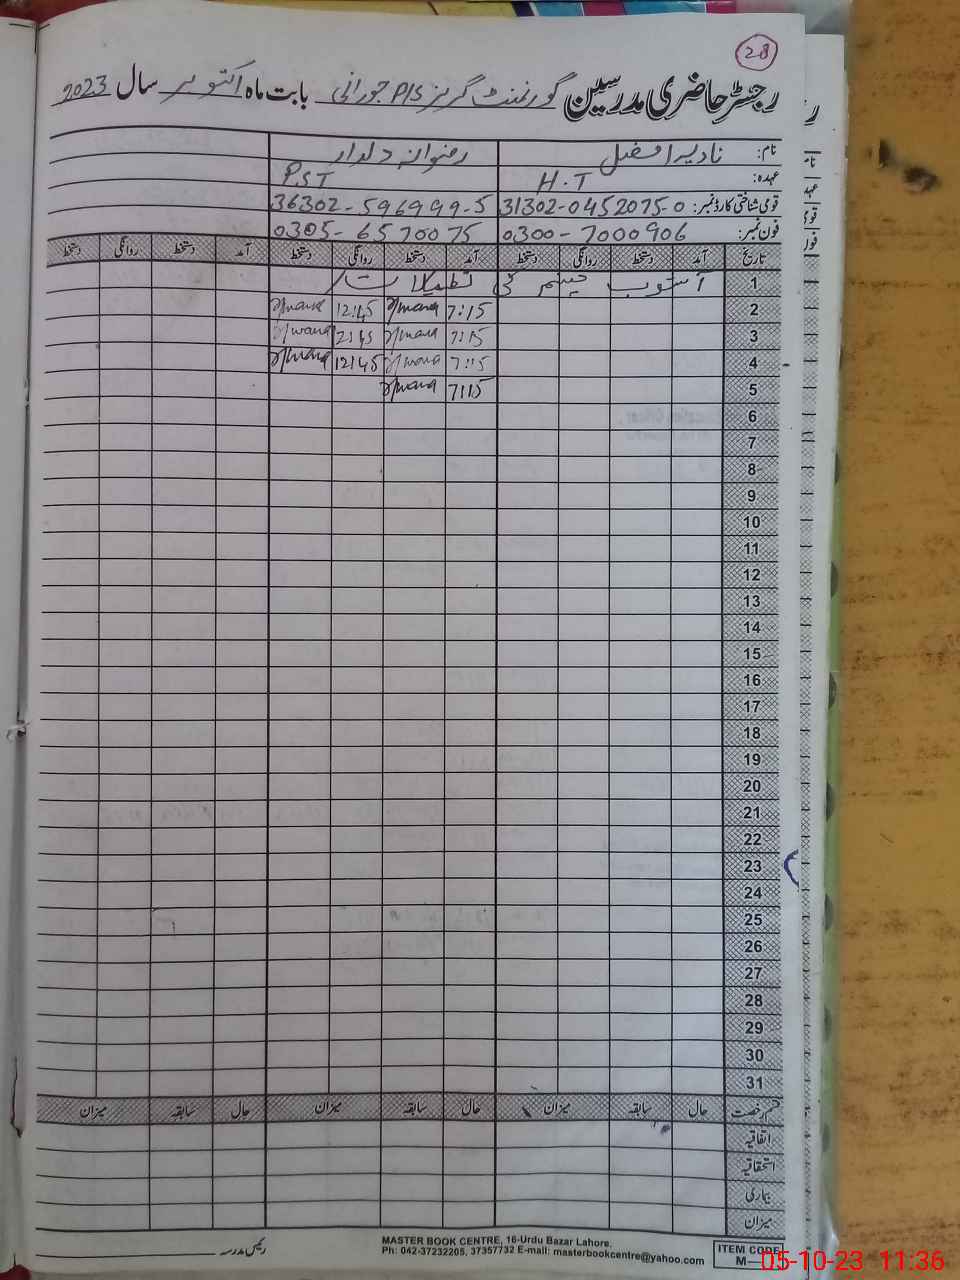 28
رجسٹر حاضری مدرسین گورنمنٹ گرلز P/S جورانی بابت ماہ اکتوبر سال 2023
نام: نادیہ افضل رضوانہ دلدار
عہدہ: H.T P.ST
قومی شناختی کارڈ نمبر: 31302-0452075-0 36302-596999-5
فون نمبر: 0300-7000906 0305-6570075
تاریخ آمد دستخط روانگی دستخط آمد دستخط روانگی دستخط آمد دستخط روانگی دستخط
1 آشوب چشم کی تعطیلات
2 7:15 12:45
3 7:15 12:45
4 7:15 12:45
5 7:15
6
7
8
9
10
11
12
13
14
15
16
17
18
19
20
21
22
23
24
25
26
27
28
29
30
31
قسم رخصت حال سابقہ میزان حال سابقہ میزان حال سابقہ میزان
اتفاقیہ
استحقاقیہ
بیماری
میزان
رئیس مدرسہ
MASTER BOOK CENTRE, 16-Urdu Bazar Lahore.
Ph: 042-37232205, 37357732 E-mail: masterbookcentre@yahoo.com
ITEM CODE
M—
05-10-23 11:36